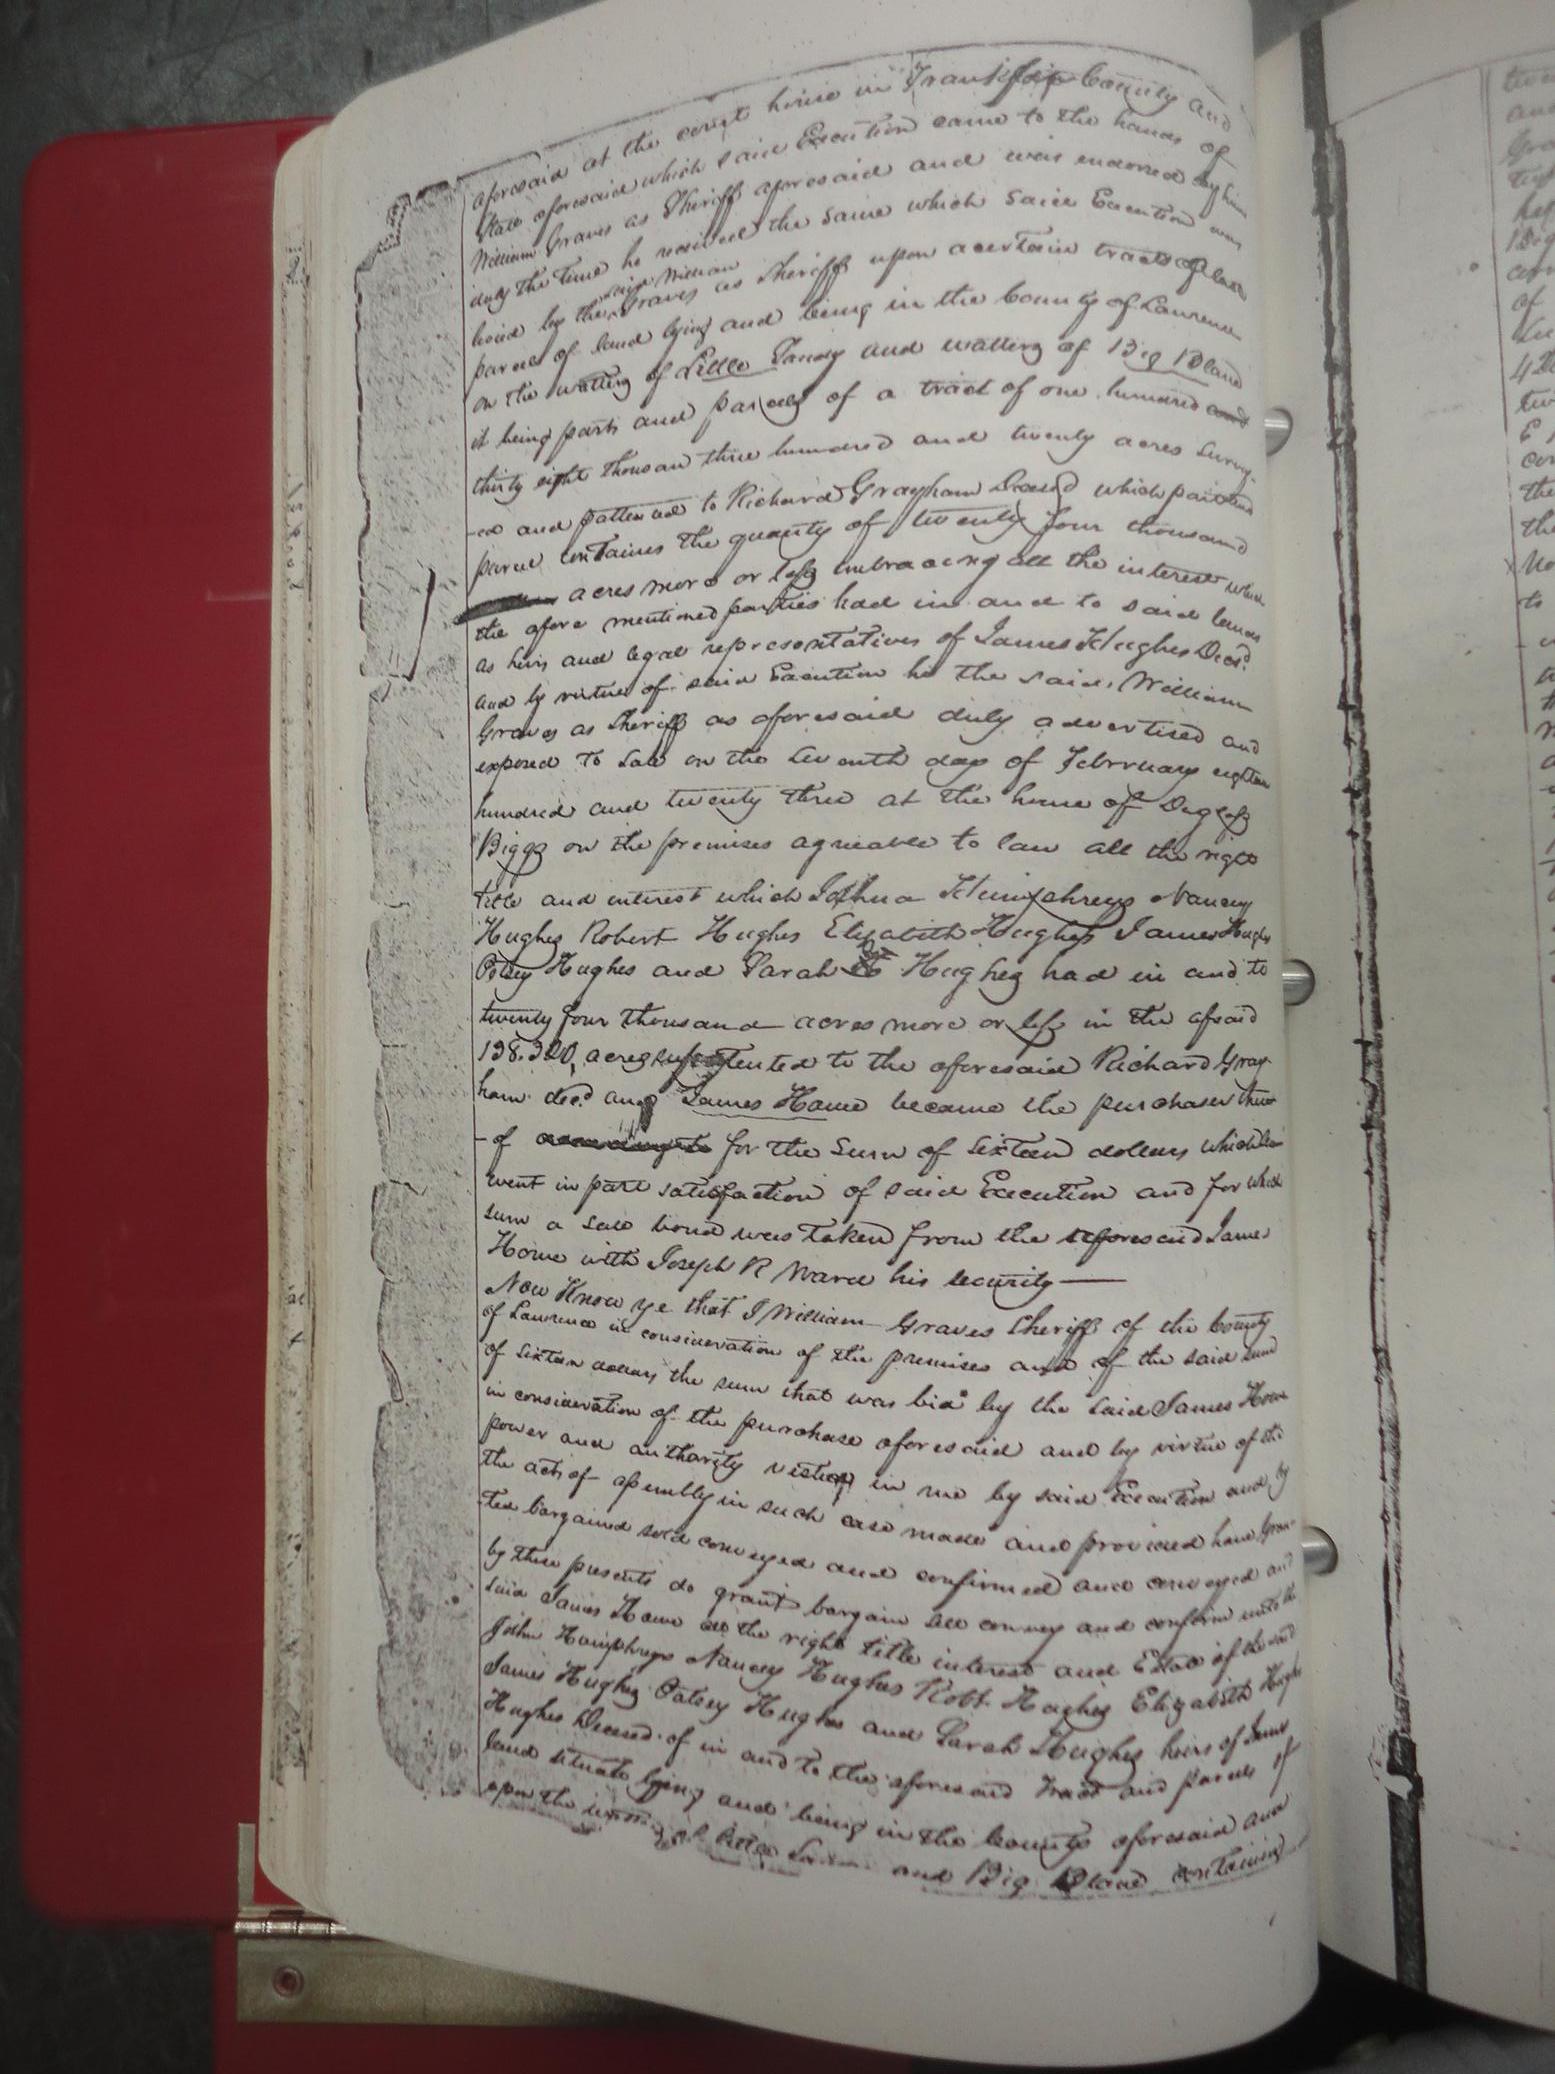 aforesaid at the court house in Franklin County and
State aforesaid which said Execution came to the hands of
William Graves as Sheriff aforesaid and was endorsed by him
duly the time he received the same which said Execution was
said William
by the Graves as Sheriff upon a certain tract of land
parcel of land lying and being in the County of Lawrence
on the watters of Little Sandy and watters of Big Blane
it being parts and parcels of a tract of one hundred and
thirty eight thousan three hundred and twenty acres survey
-ed and pattened to Richard Grayham Deceasd which part and
parcel containes the quanty of twenty four thousand
acres more or less imbraacing all the interest which
the afore mentioned parties had in and to said lands
as heirs and legal representatives of James Hughes Decsd.
and by virtue of said Execution he the said William
Graves as Sheriff as aforesaid duly advertised and
exposed to sale on the seventh day of February eighteen
hundred and twenty three at the house of
Biggs on the premises agreable to law all the right
title and interest which Joshua Humphreys Nancey
Hughes Robert Hughes Elizabeth Hughes James Hughes
Patsey Hughes and Sarah Hughes had in and to
twenty four thousand acres more or less in the afsaid
138.320, acres to the aforesaid Richard Gray-
ham decd. and James Howe became the purchaser there
-of for the sum of sixteen dollars which
went in part satisfaction of said Execution and for which
sum a sale bond was taken from the aforesaid James
Howe with Joseph R Ward his security
Now Know ye that I William Graves Sheriff of the County
of Lawrence in consideration of the premises and of the said sum
of sixteen dollars the sum that was bid by the said James Howe
in consideration of the purchase aforesaid and by virtue of the
power and autharity vested in me by said Execution and by
the acts of assembly in such case made and provided have gran-
-ted bargained sold conveyed and confirmed and conveyed and
by these presents do grant bargain sell convey and confirm unto the
said James Howe all the right title interest and Estate of the said
John Humphreys Nancey Hughes Robt. Hughes Elizabeth Hughes
James Hughes Patsey Hughes and Sarah Hughes heirs of James
Hughes Decesed of in and to the aforesaid tract and parcel of
land situate lying and being in the County aforesaid and
upon the of Little and Big Blane containing